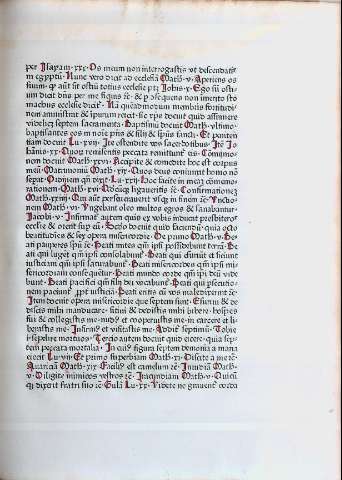 per Isayam·xxx·Os meum non interrogastis ut descendatis
in egyptũ·Nunc vero dicit ad eccleſiã Math·v·Aperiens os
ſuum· ꝙ aũt ſit oſtiũ totius eccleſie ptʒ Iobis·x·Ego ſũ oſti-
um dicit dñs per me
machus eccleſie dicit²·Nã quẽadmodum membris fortitudi-
nem aminiſtrat & ipſorum docuit quid aſſumere
videlicʒ septem ſacramenta·Baptiſmũ docuit Math·vltimo·
baptiſantes eos in noĩe pr̃is & filij & ſpũs ſancti·Et peniten
tiam docuit Lu·xvii·Ite oſtendite vos ſacerdotibus·Itẽ Io
hãnis·xx·Quoꝝ remiſeritis peccata remittunť eis·Cõmunio-
nem docuit Math·xxvi·Accipite & comedite hoc eſt corpus
meũ·Matrimoniũ Math·xix·Quos deus coniunxit homo nõ
ſepet·Ordinem q̃n dixit·Lu·xxii·Hoc facite in meã cõmemo-
rationem·Math·xvi·Qḋcũqʒ ligaveritis ꝛč·Confirmationeʒ
Math·xxiiij·Qui aũt perſeuerauerit vſqʒ in finem ꝛč·Vnctio-
nem Math·vi·Vngebant oleo multos egros & ſanabantur·
Iacobi·v·Infirmať autem quis ex vobis inducat preſbiteros
eccleſie & orent ſup eũ·Sc̃do docuit quid faciendũ· quia octo
b̃titudines & ſex opera miſericordie·De primo Math·v·Be
ati pauperes ſpũ ꝛč·Beati mites qm̃ ipſi poſſidebunt terrã·Be
ati qui lugẽt qm̃ ipſi conſolabunť·Beati qui eſuriũt & ſitiunt
iuſticiam qm̃ ipſi ſaturabunť·Beati miſericordes qm̃ ipſi mi-
ſericordiam conſequẽtur·Beati mundo corde qm̃ ipſi deũ vide
bunt·Beati pacifici qm̃ filij dei vocabunť·Beati qui perſecutio-
nem paciunť ꝓpť iuſticiã·Beati eritis cũ vos maledixerint ꝛč·
Item docuit opera miſericordie que ſeptem ſunt·Eſuriui & de
diſtis mihi manducare· ſitiui & dediſtis mihi bibere· hoſpes
fui & collegiſtis me·nud⁹ et cooperuiſtis me·in carcere et li
beraſtis me·Infirm⁹ et viſitaſtis me·Addiť ſeptimũ·Tobie
i·ſepelire mortuos·Tercio autem docuit quid vitet·quia ſep-
tem peccata mortalia·In cui⁹ figura ſeptem demonia a maria
eiecit Lu·vii·Et primo ſuperbiam Math·xi·Diſcite a me ꝛč·
Auariciã Math·xix·Facili⁹ eſt camelum ꝛč·Inuidiã Math·
v·Diligite inimicos veſtros ꝛč·Iracundiam Math·v·Quicũ
qʒ dixerit fratri ſuo ꝛč·Gulã Lu·xx·Videte ne grauenť corda